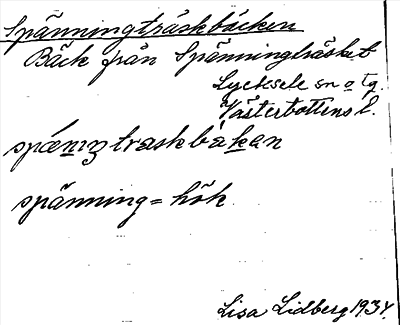 Spänningträskbäcken
Bäck från Spänningträsket
Lycksele sn o tg.
Västerbottens l.
spǽnıŋtraskbäkan
spänning = hök
Lisa Lidberg 1934.